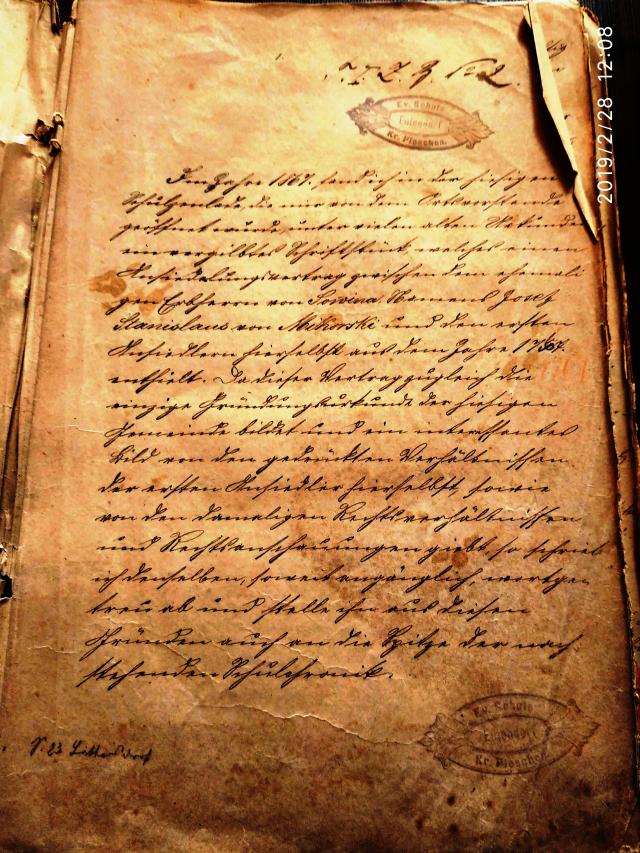 Ev. Schule
Eulendorf
Kr. Pleschen.
Im Jahre 1867. fand ich in der hiesigen
Schulzenlade, die mir von dem Ortsvorstande
geöffnet wurde, unter vielen alten Urkunden
ein vergilbtes Schriftstück, welches einen
Ansiedelungsvertrag zwischen dem ehemali
gen Erbherrn von Sowina, Namens Josef
Stanislaus von Mikorski und den ersten
Ansiedlern hierselbst aus dem Jahre
enthielt. Da dieser Vertrag zugleich die
einzige Gründungsurkunde der hiesigen
Gemeinde bildet und ein interessantes
Bild von den gedrückten Verhältnissen
der ersten Ansiedler hierselbst, sowie
von den damaligen Rechtsverhältnissen
und Rechtsanschauungen giebt, so schrieb
ich denselben, soweit angänglich, wortge
treu ab und stelle ihn aus diesen
Gründen auch an die Spitze der nach
stehenden Schulchronik.
Ev. Schule
Eulendorf
Kr. Pleschen
2019/2/28 12:08